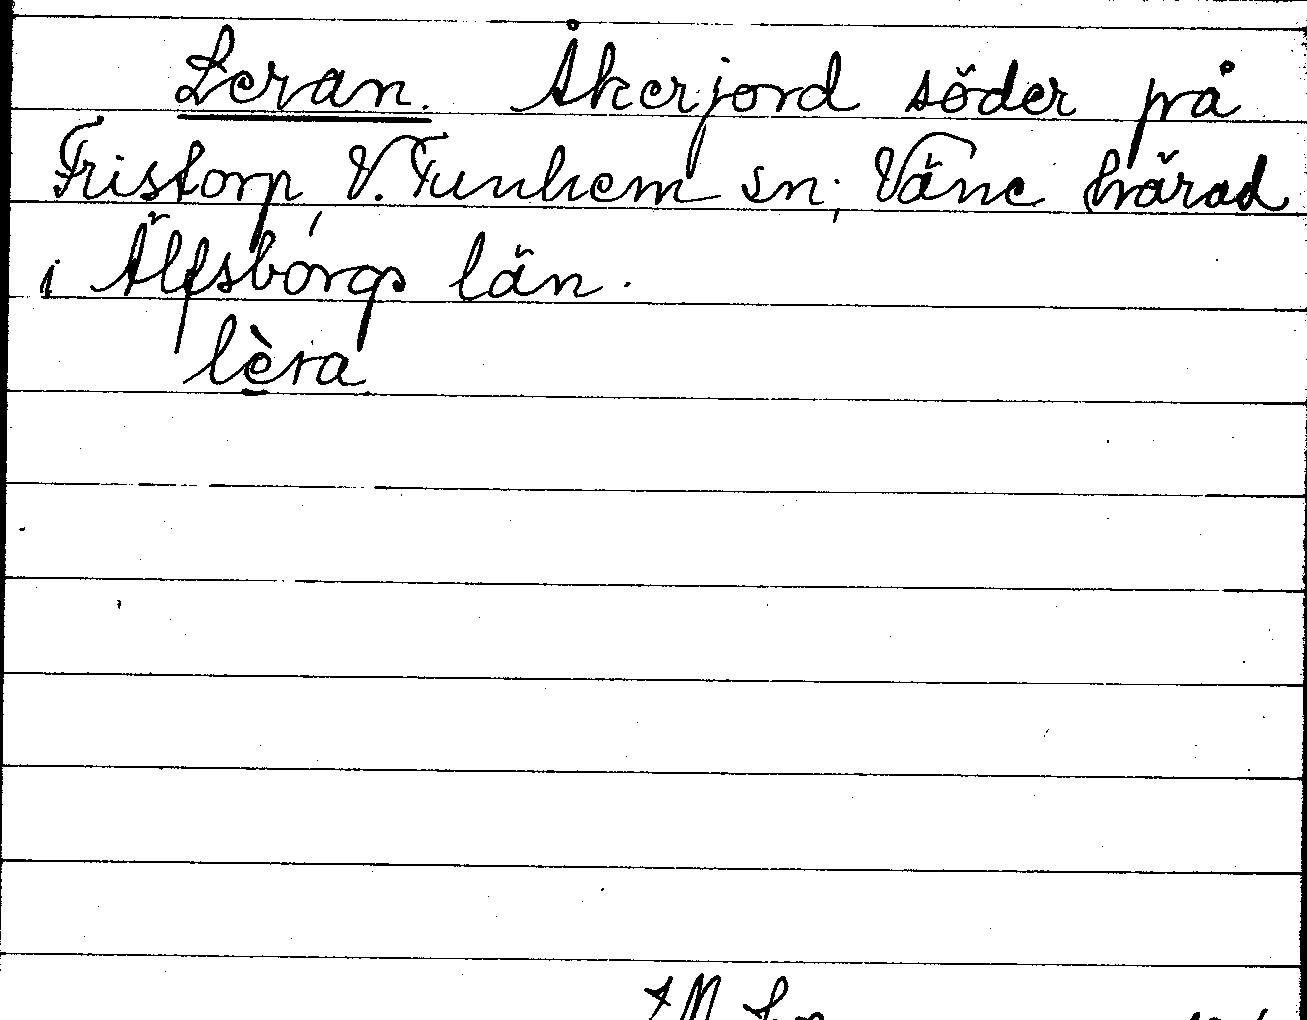 Leran. Åkerjord söder på
Fristorp, V. Tunhem sn; Väne härad
i Älfsborgs län.
lèra